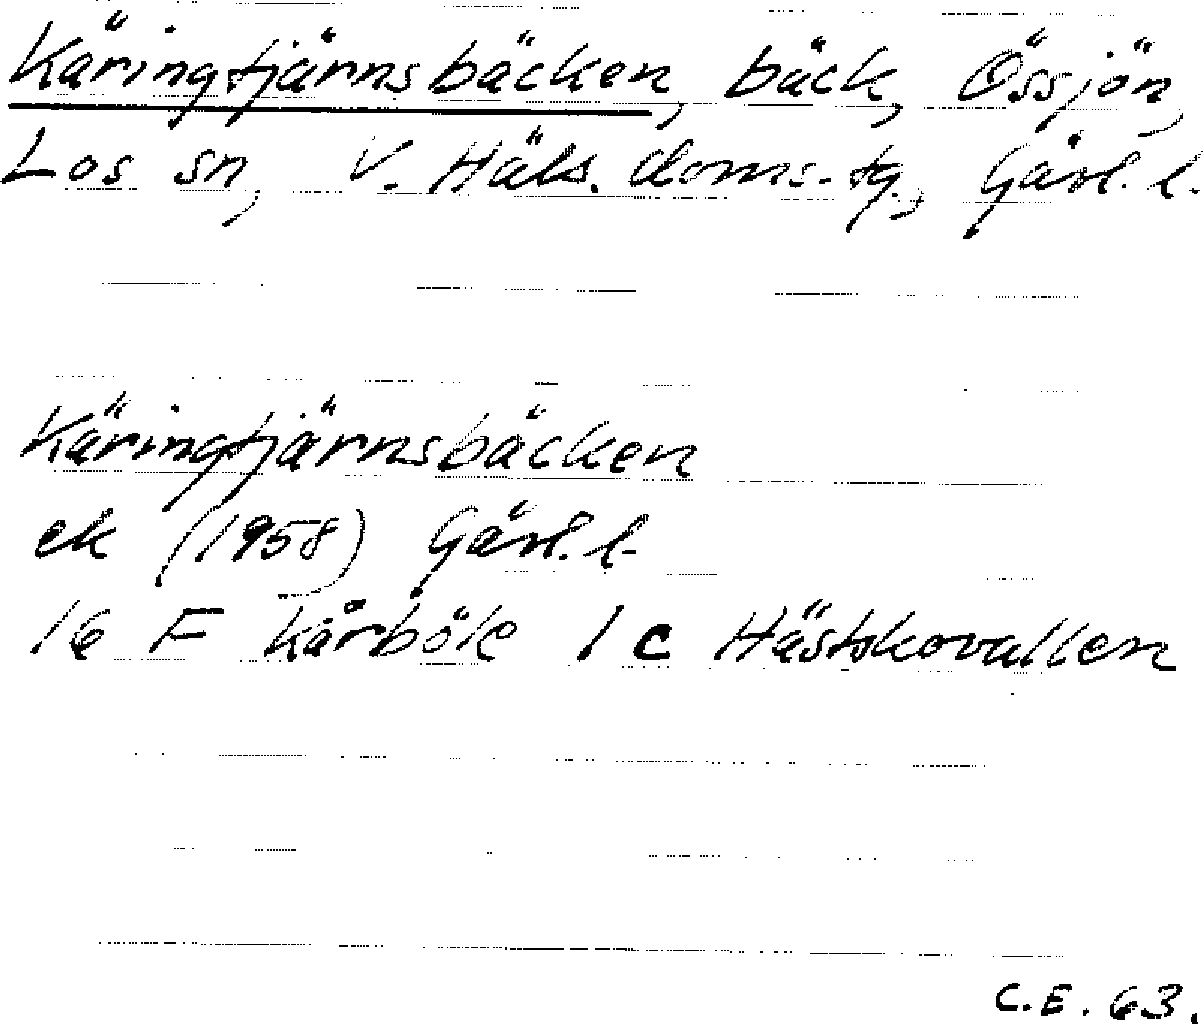 Käringtjärnsbäcken, bäck, Össjön,
Los sn, V. Häls. doms.-tg., Gävl. l.
Käringtjärnsbäcken
ek (1958) Gävl. l.
16 F Kårböle 1 c Hästskovallen
C.E. 63.